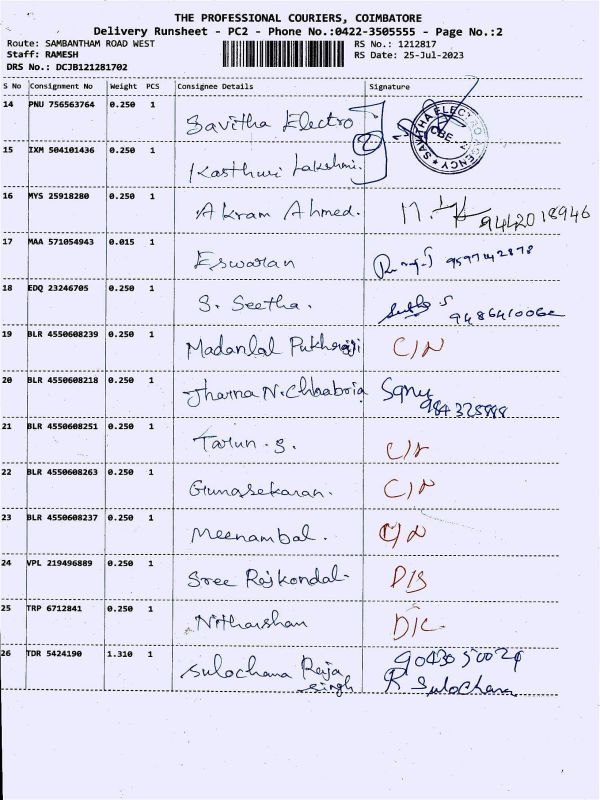 THE PROFESSIONAL COURIERS, COIMBATORE
Delivery Runsheet - PC2 - Phone No.:0422-3505555 - Page No.:2
Route: SAMBANTHAM ROAD WEST RS No.: 1212817
Staff: RAMESH RS Date: 25-Jul-2023
DRS No.: DCJB121281702
S No Consignment No Weight PCS Consignee Details Signature
14 PNU 756563764 0.250 1 Savitha Electro
SAVITHA ELECTRO AGENCY CBE - 2
15 IXM 504101436 0.250 1 Kasthuri Lakshmi. 2
16 MYS 25918280 0.250 1 Akram Ahmed. 9442018946
17 MAA 571054943 0.015 1 Eswaran 9597142878
18 EDQ 23246705 0.250 1 S. Seetha.
19 BLR 4550608239 0.250 1 Madanlal C/N
20 BLR 4550608218 0.250 1 Jharna N. Chhabria
21 BLR 4550608251 0.250 1 Tarun. S. C/N
22 BLR 4550608263 0.250 1 Gunasekaran. C/N
23 BLR 4550608237 0.250 1 Meenambal. C/N
24 VPL 219496889 0.250 1 Sree Rajkondal. D/S
25 TRP 6712841 0.250 1 Nitharshan D/C
26 TDR 5424190 1.310 1 Sulochana Raja 9043050029
singh R Sulochana